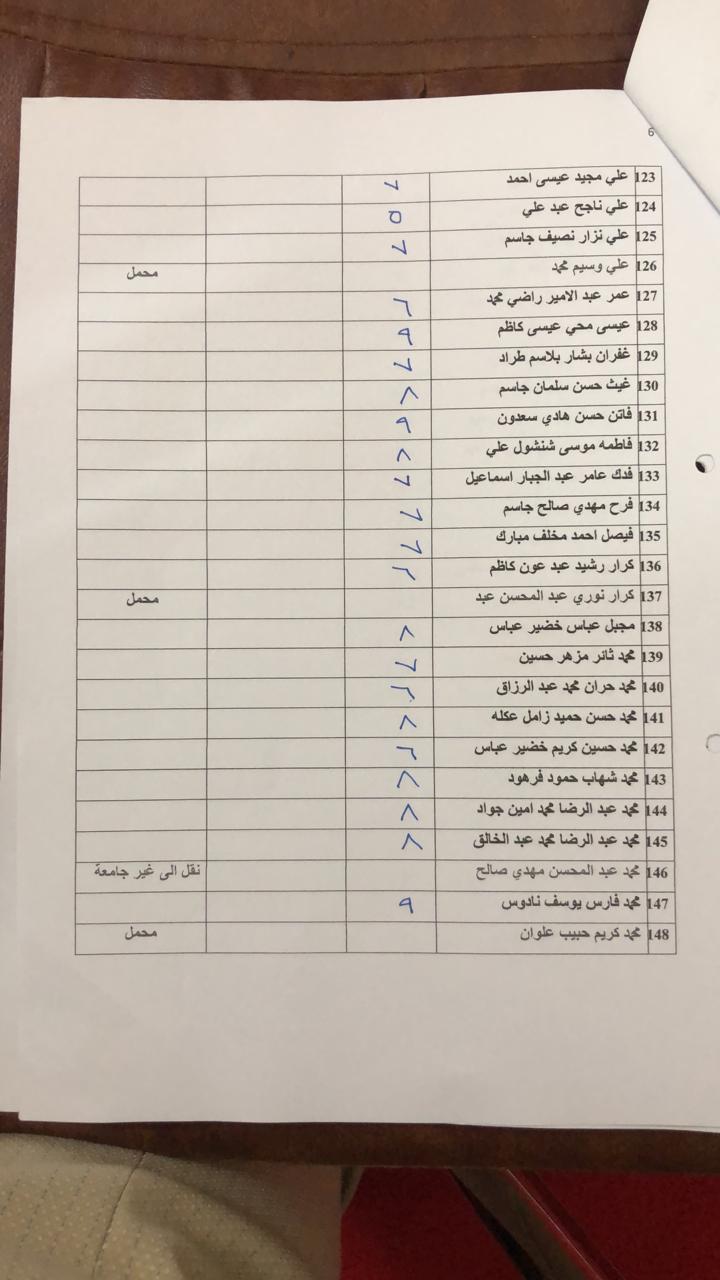 6
123 علي مجيد عيسى احمد ٦
124 علي ناجح عبد علي ٥
125 علي نزار نصيف جاسم ٦
126 علي وسيم محمد محمل
127 عمر عبد الامير راضي محمد ٦
128 عيسى محي عيسى كاظم ٩
129 غفران بشار بلاسم طراد ٦
130 غيث حسن سلمان جاسم ٨
131 فاتن حسن هادي سعدون ٩
132 فاطمه موسى شنشول علي ٨
133 فدك عامر عبد الجبار اسماعيل ٦
134 فرح مهدي صالح جاسم ٦
135 فيصل احمد مخلف مبارك ٦
136 كرار رشيد عبد عون كاظم
137 كرار نوري عبد المحسن عبد محمل
138 مجبل عباس خضير عباس ٨
139 محمد ثائر مزهر حسين ٦
140 محمد حران محمد عبد الرزاق
141 محمد حسن حميد زامل عكله ٨
142 محمد حسين كريم خضير عباس
143 محمد شهاب حمود فرهود ٨
144 محمد عبد الرضا محمد امين جواد ٨
145 محمد عبد الرضا محمد عبد الخالق ٨
146 محمد عبد المحسن مهدي صالح نقل الى غير جامعة
147 محمد فارس يوسف نادوس ٩
148 محمد كريم حبيب علوان محمل